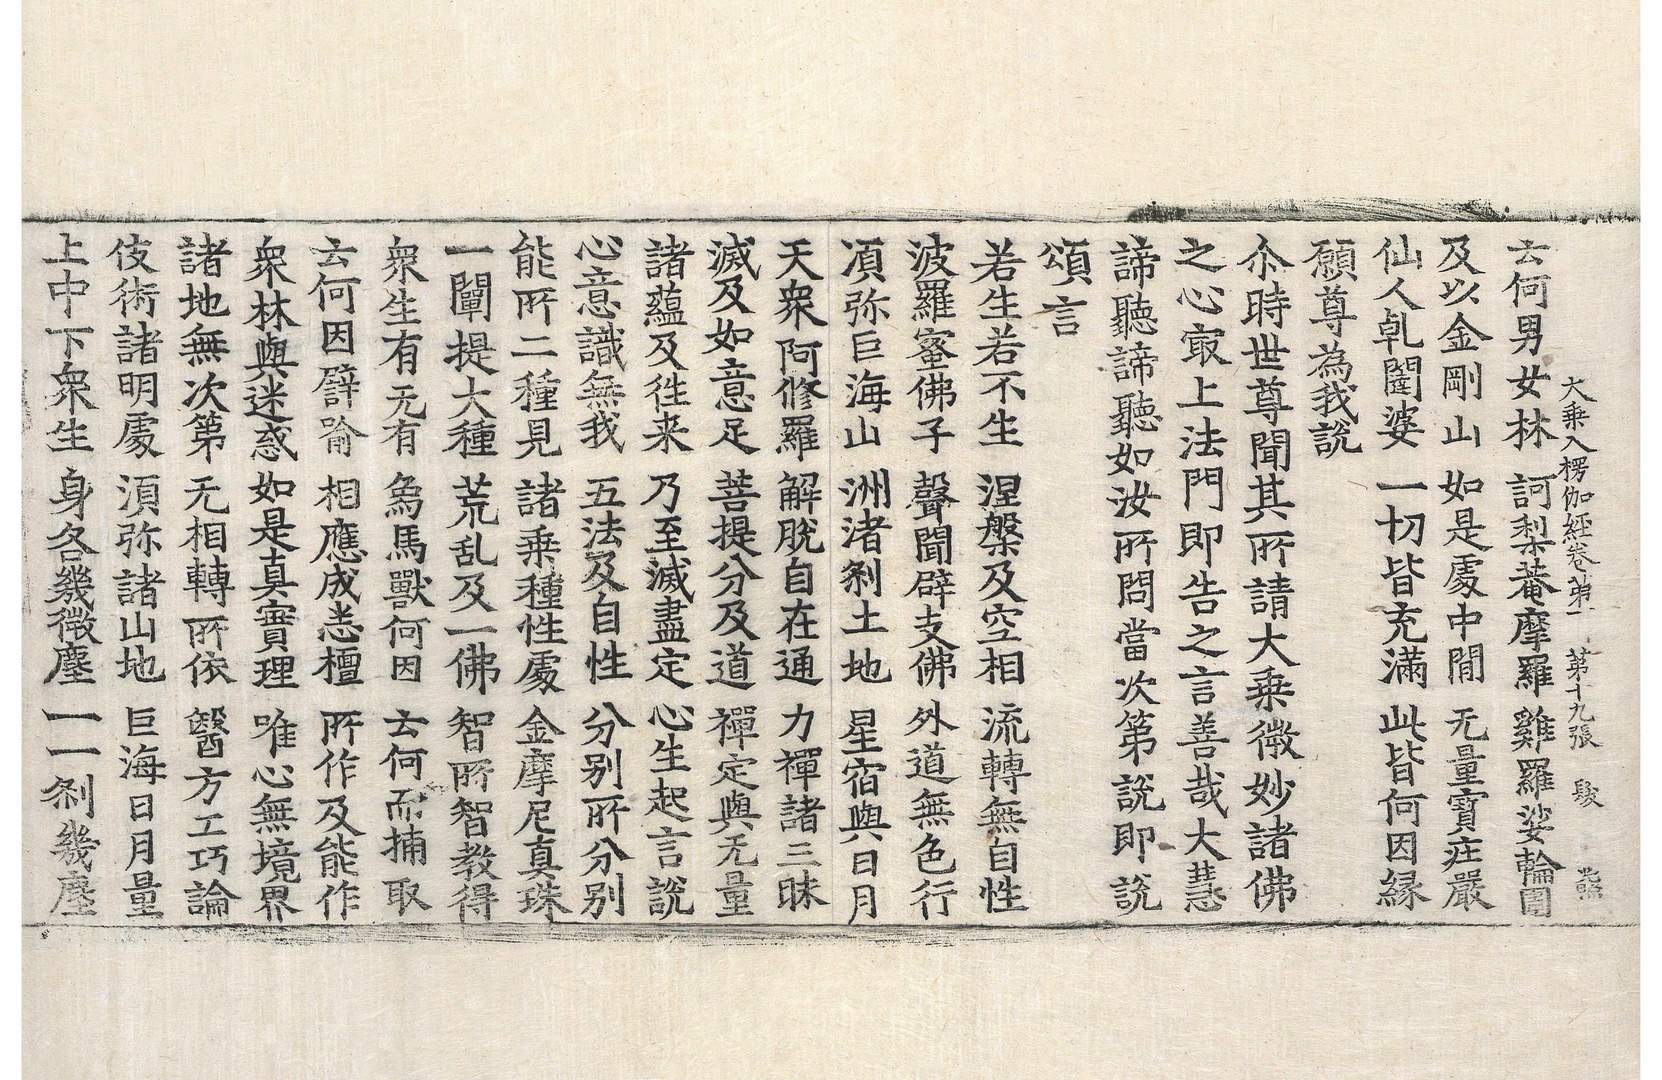 大乘入楞伽經卷第一 第十九張 㕙
云何男女林 訶梨菴摩羅 雞羅娑輪圍
及以金剛山 如是處中間 无量寶莊嚴
仙人乹闥婆 一切皆充滿 此皆何因緣
願尊為我說
尒時世尊聞其所請大乘微妙諸佛
之心㝡上法門即告之言善哉大慧
諦聽諦聽如汝所問當次第說即說
頌言
若生若不生 涅槃及空相 流轉無自性
波羅蜜佛子 聲聞辟支佛 外道無色行
湏弥巨海山 洲渚剎土地 星宿與日月
天衆阿修羅 解脫自在通 力禪諸三昧
滅及如意足 菩提分及道 禪定與无量
諸蘊及往来 乃至滅盡定 心生起言說
心意識無我 五法及自性 分別所分別
能所二種見 諸乘種性處 金摩尼真珠
一闡提大種 荒乱及一佛 智所智教得
衆生有无有 象馬獸何因 云何而捕取
云何因譬喻 相應成悉檀 所作及能作
衆林與迷惑 如是真實理 唯心無境界
諸地無次第 无相轉所依 醫方工巧論
伎術諸明處 湏弥諸山地 巨海日月量
上中下衆生 身各幾微塵 一一剎幾塵